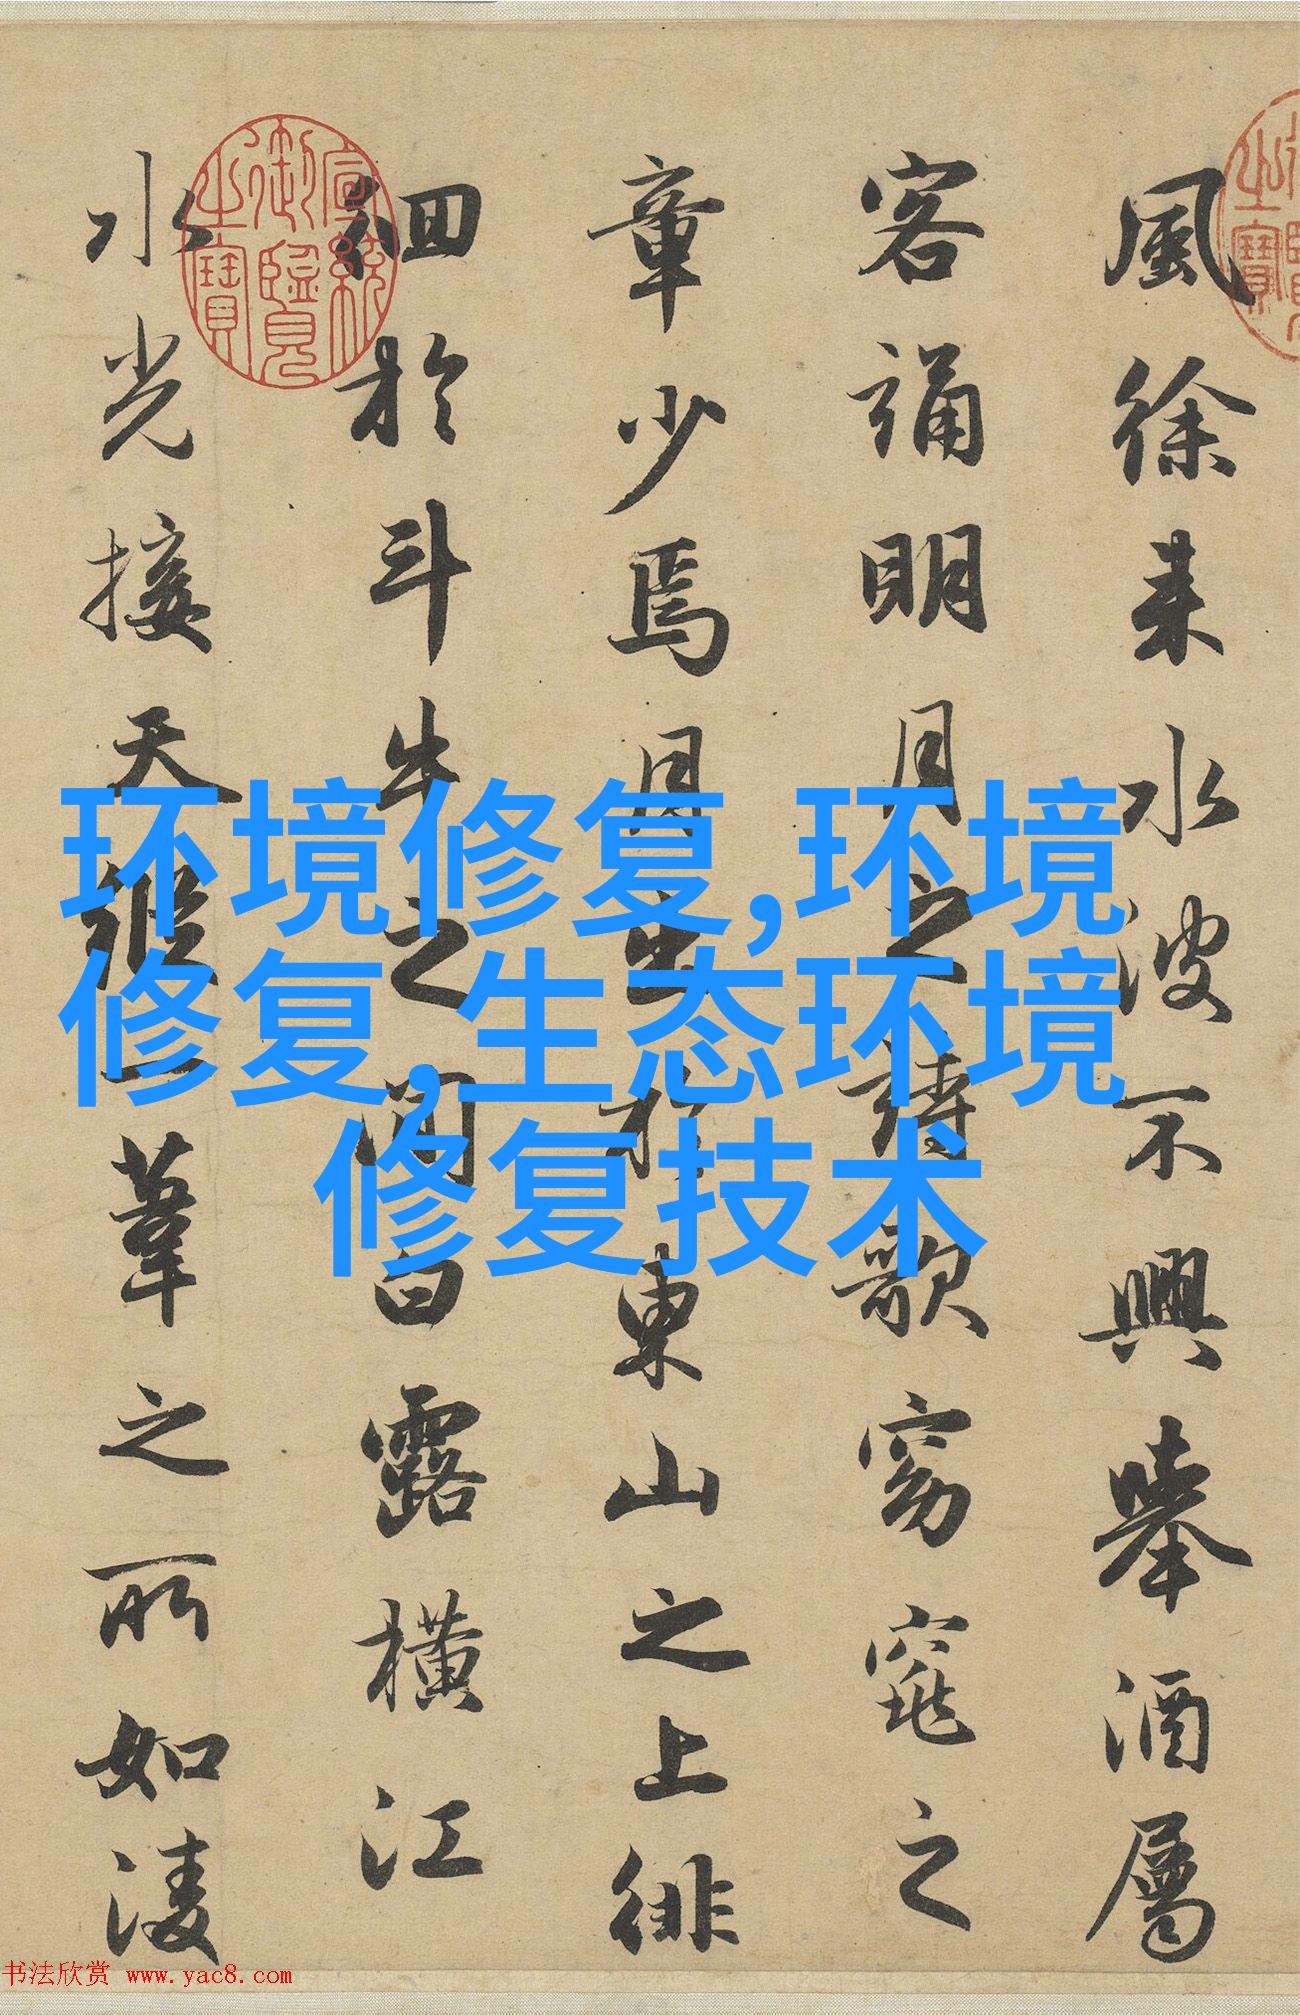 風徐来水波不興舉酒屬
客誦明月之詩歌窈窕之
章少焉月出於東山之上徘
徊於斗牛之間白露橫江
水光接天縱一葦之所如淩
宣統御覽之寶
环境修复,环境
修复,生态环境
修复技术
书法欣赏 www.yac8.com